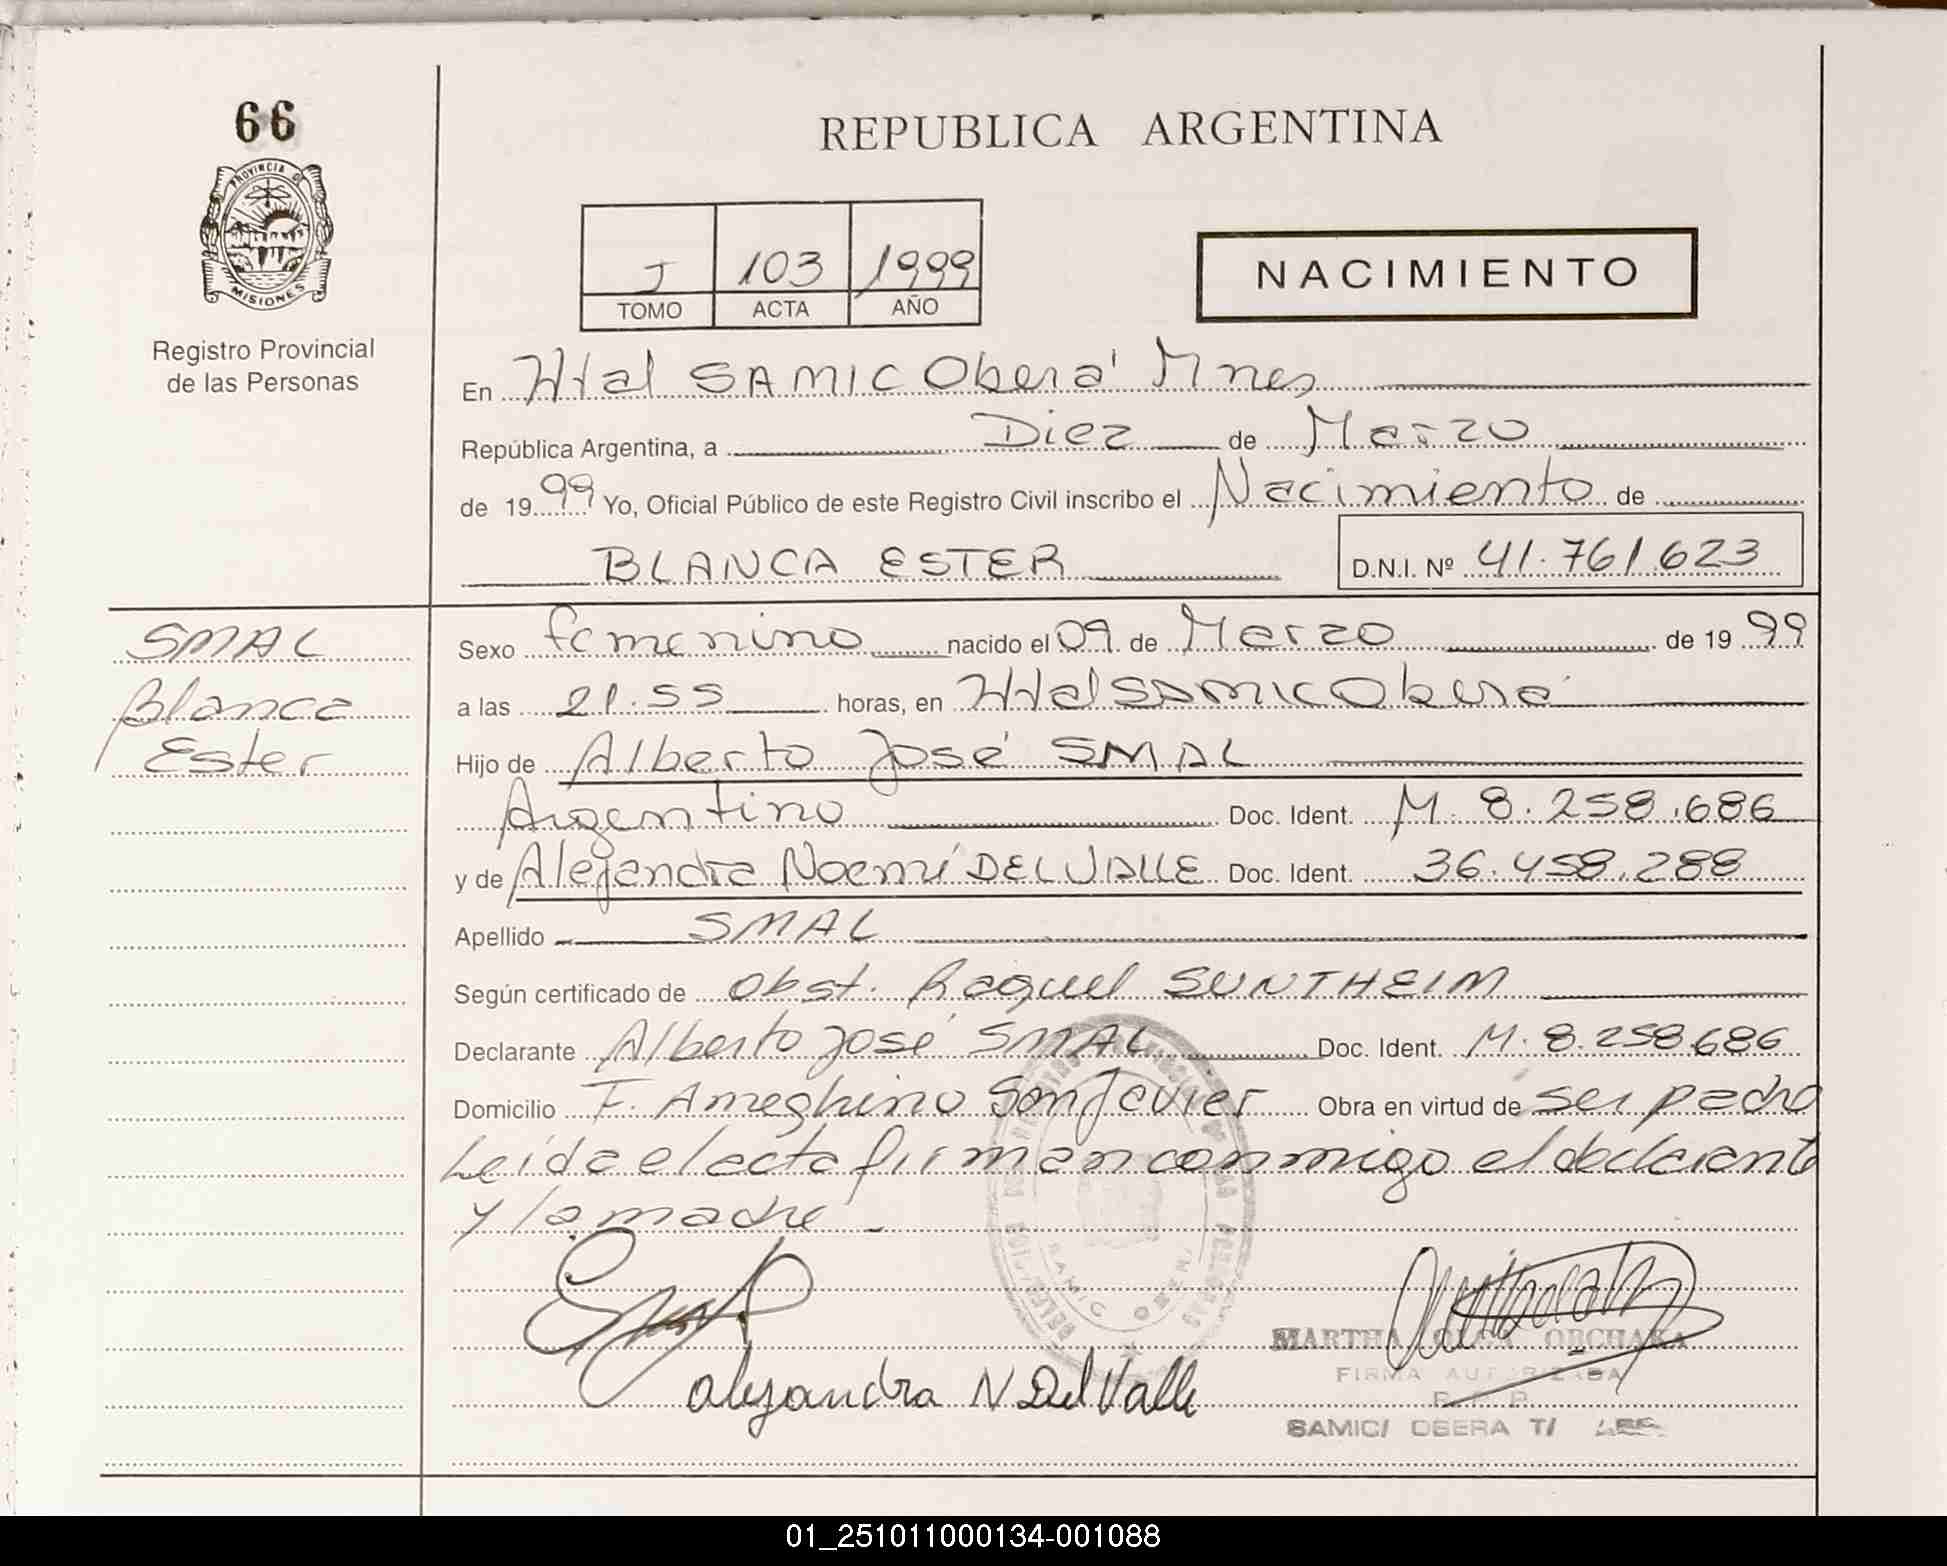 66
PROVINCIA DE
MISIONES
Registro Provincial
de las Personas
REPUBLICA ARGENTINA
J 103 1999
TOMO ACTA AÑO
NACIMIENTO
En Htal SAMIC Oberá Mnes
República Argentina, a Diez de Marzo
de 1999 Yo, Oficial Público de este Registro Civil inscribo el Nacimiento de
BLANCA ESTER D.N.I. Nº 41.761.623
SMAL
Blanca
Ester
Sexo femenino nacido el 09 de Marzo de 1999
a las 21.55 horas, en Htal SAMIC Oberá
Hijo de Alberto José SMAL
Argentino Doc. Ident. M. 8.258.686
y de Alejandra Noemí DEL VALLE Doc. Ident. 36.458.288
Apellido SMAL
Según certificado de Obst. Raquel SUNTHEIM
Declarante Alberto José SMAL Doc. Ident. M. 8.258.686
Domicilio F. Ameghino San Javier Obra en virtud de ser padre
Leída el acta firman conmigo el declarante
y la madre.-
Alejandra N Del Valle
MARTHA OLGA ORCHAKA
FIRMA AUTORIZADA
R. P. P.
SAMIC/ OBERA T/
01_251011000134-001088